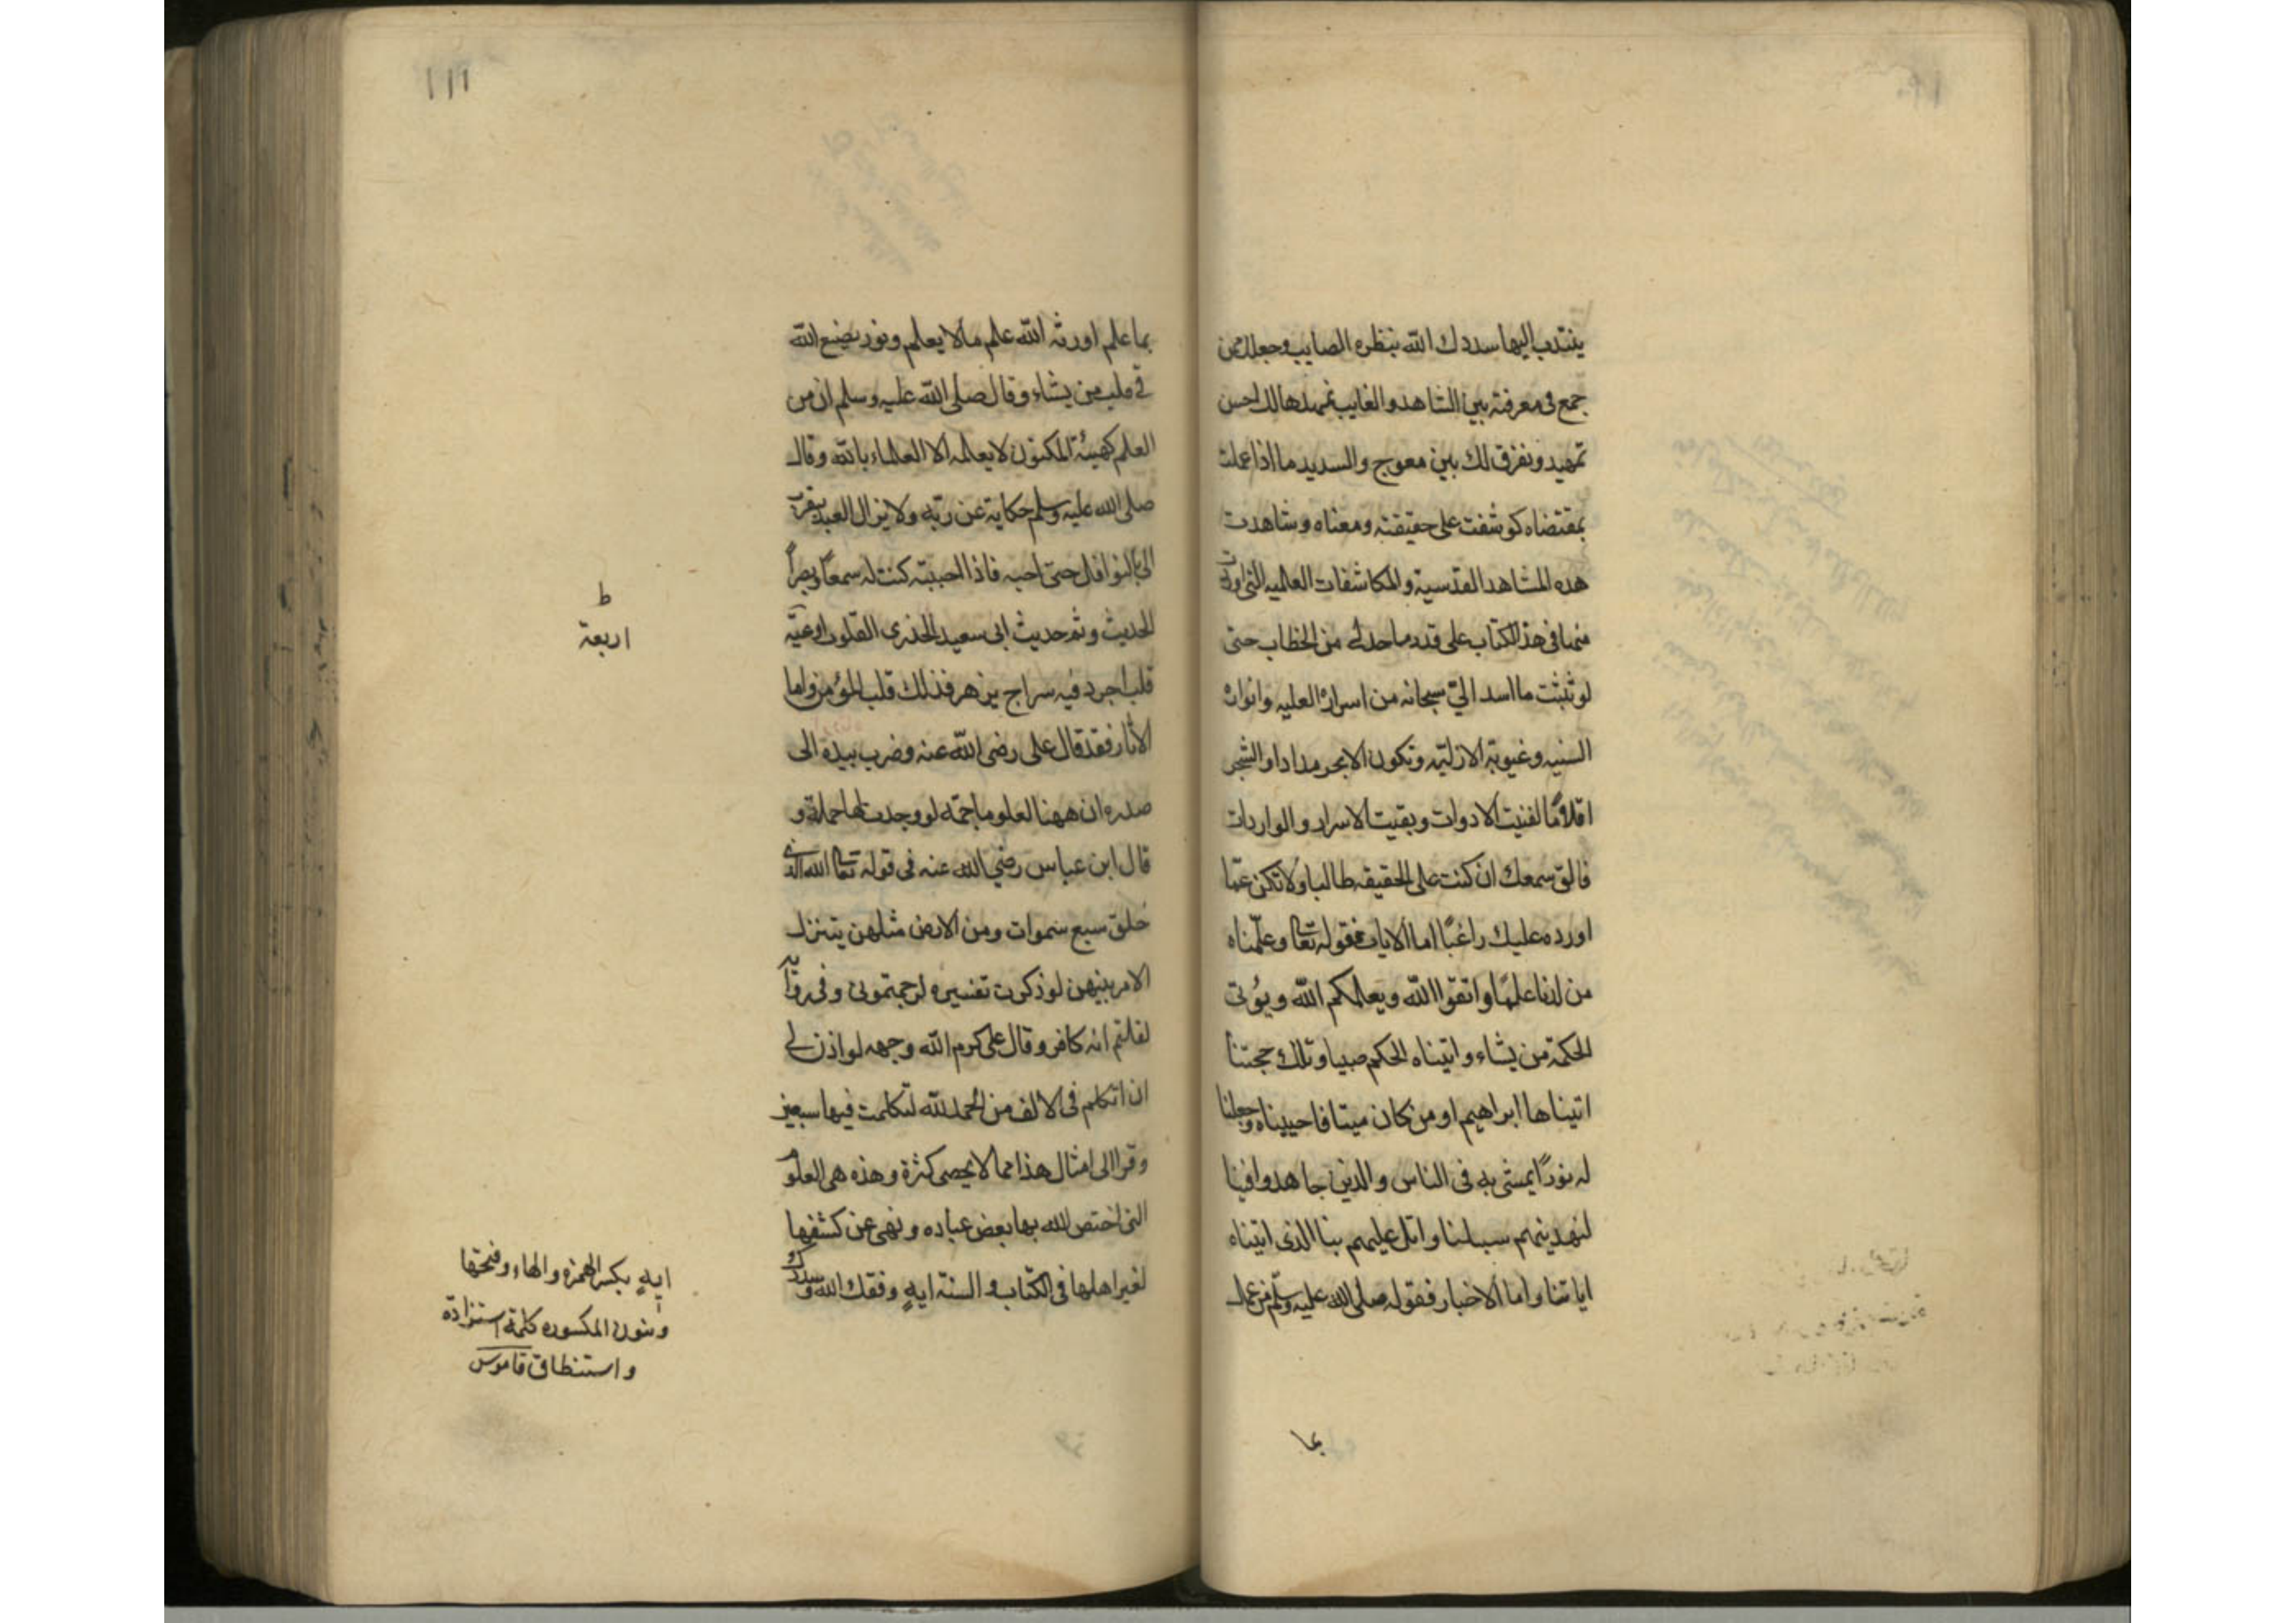 ينتدب اليها سددك الله بنظره الصايب وجعلك ممن
جمع فى معرفته بين الشاهد والغايب نمهدها لك احسن
تمهيد ونفرق لك بين معوج والسديد ما اذا عملت
بمقتضاه كوشفت على حقيقته ومعناه وشاهدت
هذه المشاهد القدسية والمكاشفات العالميه التى اوردت
منها فى هذا الكتاب على قدر ما حد لى من الخطاب حتى
لو ثبتت ما اسد الىّ سبحانه من اسراره العليه وانواره
السنيه وغيوبة الازليّه وتكون الابحر مدادا والشجر
اقلامًا لفنيت الادوات وبقيت الاسرار والواردات
فالق سمعك ان كنت على الحقيقه طالبا ولا تكن عمّا
اورده عليك راغبًا اما الايات فقوله تعالى وعلّمناه
من لدنا علمًا واتقوا الله ويعلمكم الله ويؤتى
الحكمة من يشاء واتيناه الحكم صبيا وتلك حجتنا
اتيناها ابراهيم او من كان ميتا فاحييناه وجعلنا
له نورًا يمشى به فى الناس والذين جاهدوا فينا
لنهدينهم سبلنا واتل عليهم نبا الذى اتيناه
اياتنا واما الاخبار فقوله صلى الله عليه وسلم من عمل
بما
١١١
بما علم اورثه الله علم مالا يعلم ونور يضع الله
فى قلب من يشاء وقال صلى الله عليه وسلم ان من
العلم كهيئة المكنون لا يعلمه الا العلماء بالله وقال
صلى الله عليه وسلم حكاية عن ربه ولا يزال العبد يتقرب
الى بالنوافل حتى احبه فاذا احببته كنت له سمعًا وبصرًا
الحديث وثم حديث ابى سعيد الخدرى القلوب اوعيّة
قلب اجرد فيه سراج يزهر فذلك قلب المؤمن واما
الاثار فقد قال على رضى الله عنه وضرب بيده الى
صدره ان ههنا لعلوما جمّه لو وجدت لها حملة و
قال ابن عباس رضي الله عنه فى قوله تعالى الله الذى
خلق سبع سموات ومن الارض مثلهن يتنزل
الامر بينهن لو ذكرت تفسيره لرجمتمونى وفى رواية
لقلتم انه كافر وقال على كرم الله وجهه لو اذن لى
ان اتكلم فى الالف من الحمد لله لتكلمت فيها سبعين
وقرا الى امثال هذا مما لا يحصى كثرة وهذه هى العلوم
التى اختص الله بها بعض عباده ونهى عن كشفها
لغير اهلها فى الكتاب والسنة ايهٍ وفقك الله وسددك
ط
اربعة
ايهٍ بكسر الهمزه والهاء وفتحها
وتنون المكسوره كلمة استزادة
واستنطاق قاموس